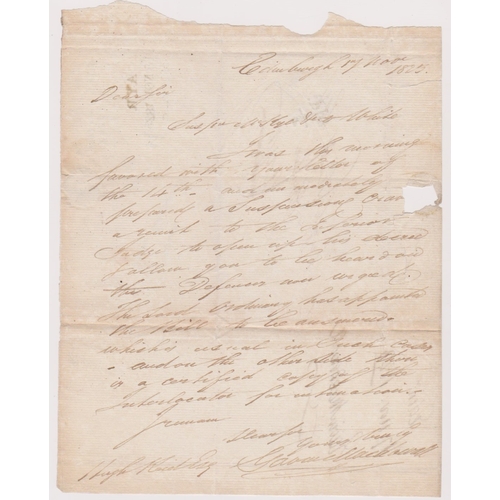 Edinburgh 17 Novr
1825.
Dear Sir
White
I was this morning
favored with your letter of
the 14th and immediately
prepared a Suspension
a remit to the Inferior
Judge to open up his decree
& allow you to be heard on
the Defences now urged.
The Lord Ordinary has appointed
the Bill to be answered
which is usual in such cases
and on the other side there
is a certified copy of the
Interlocutor for intimation.
I remain
Dear Sir
Yours truly
Hugh Esq